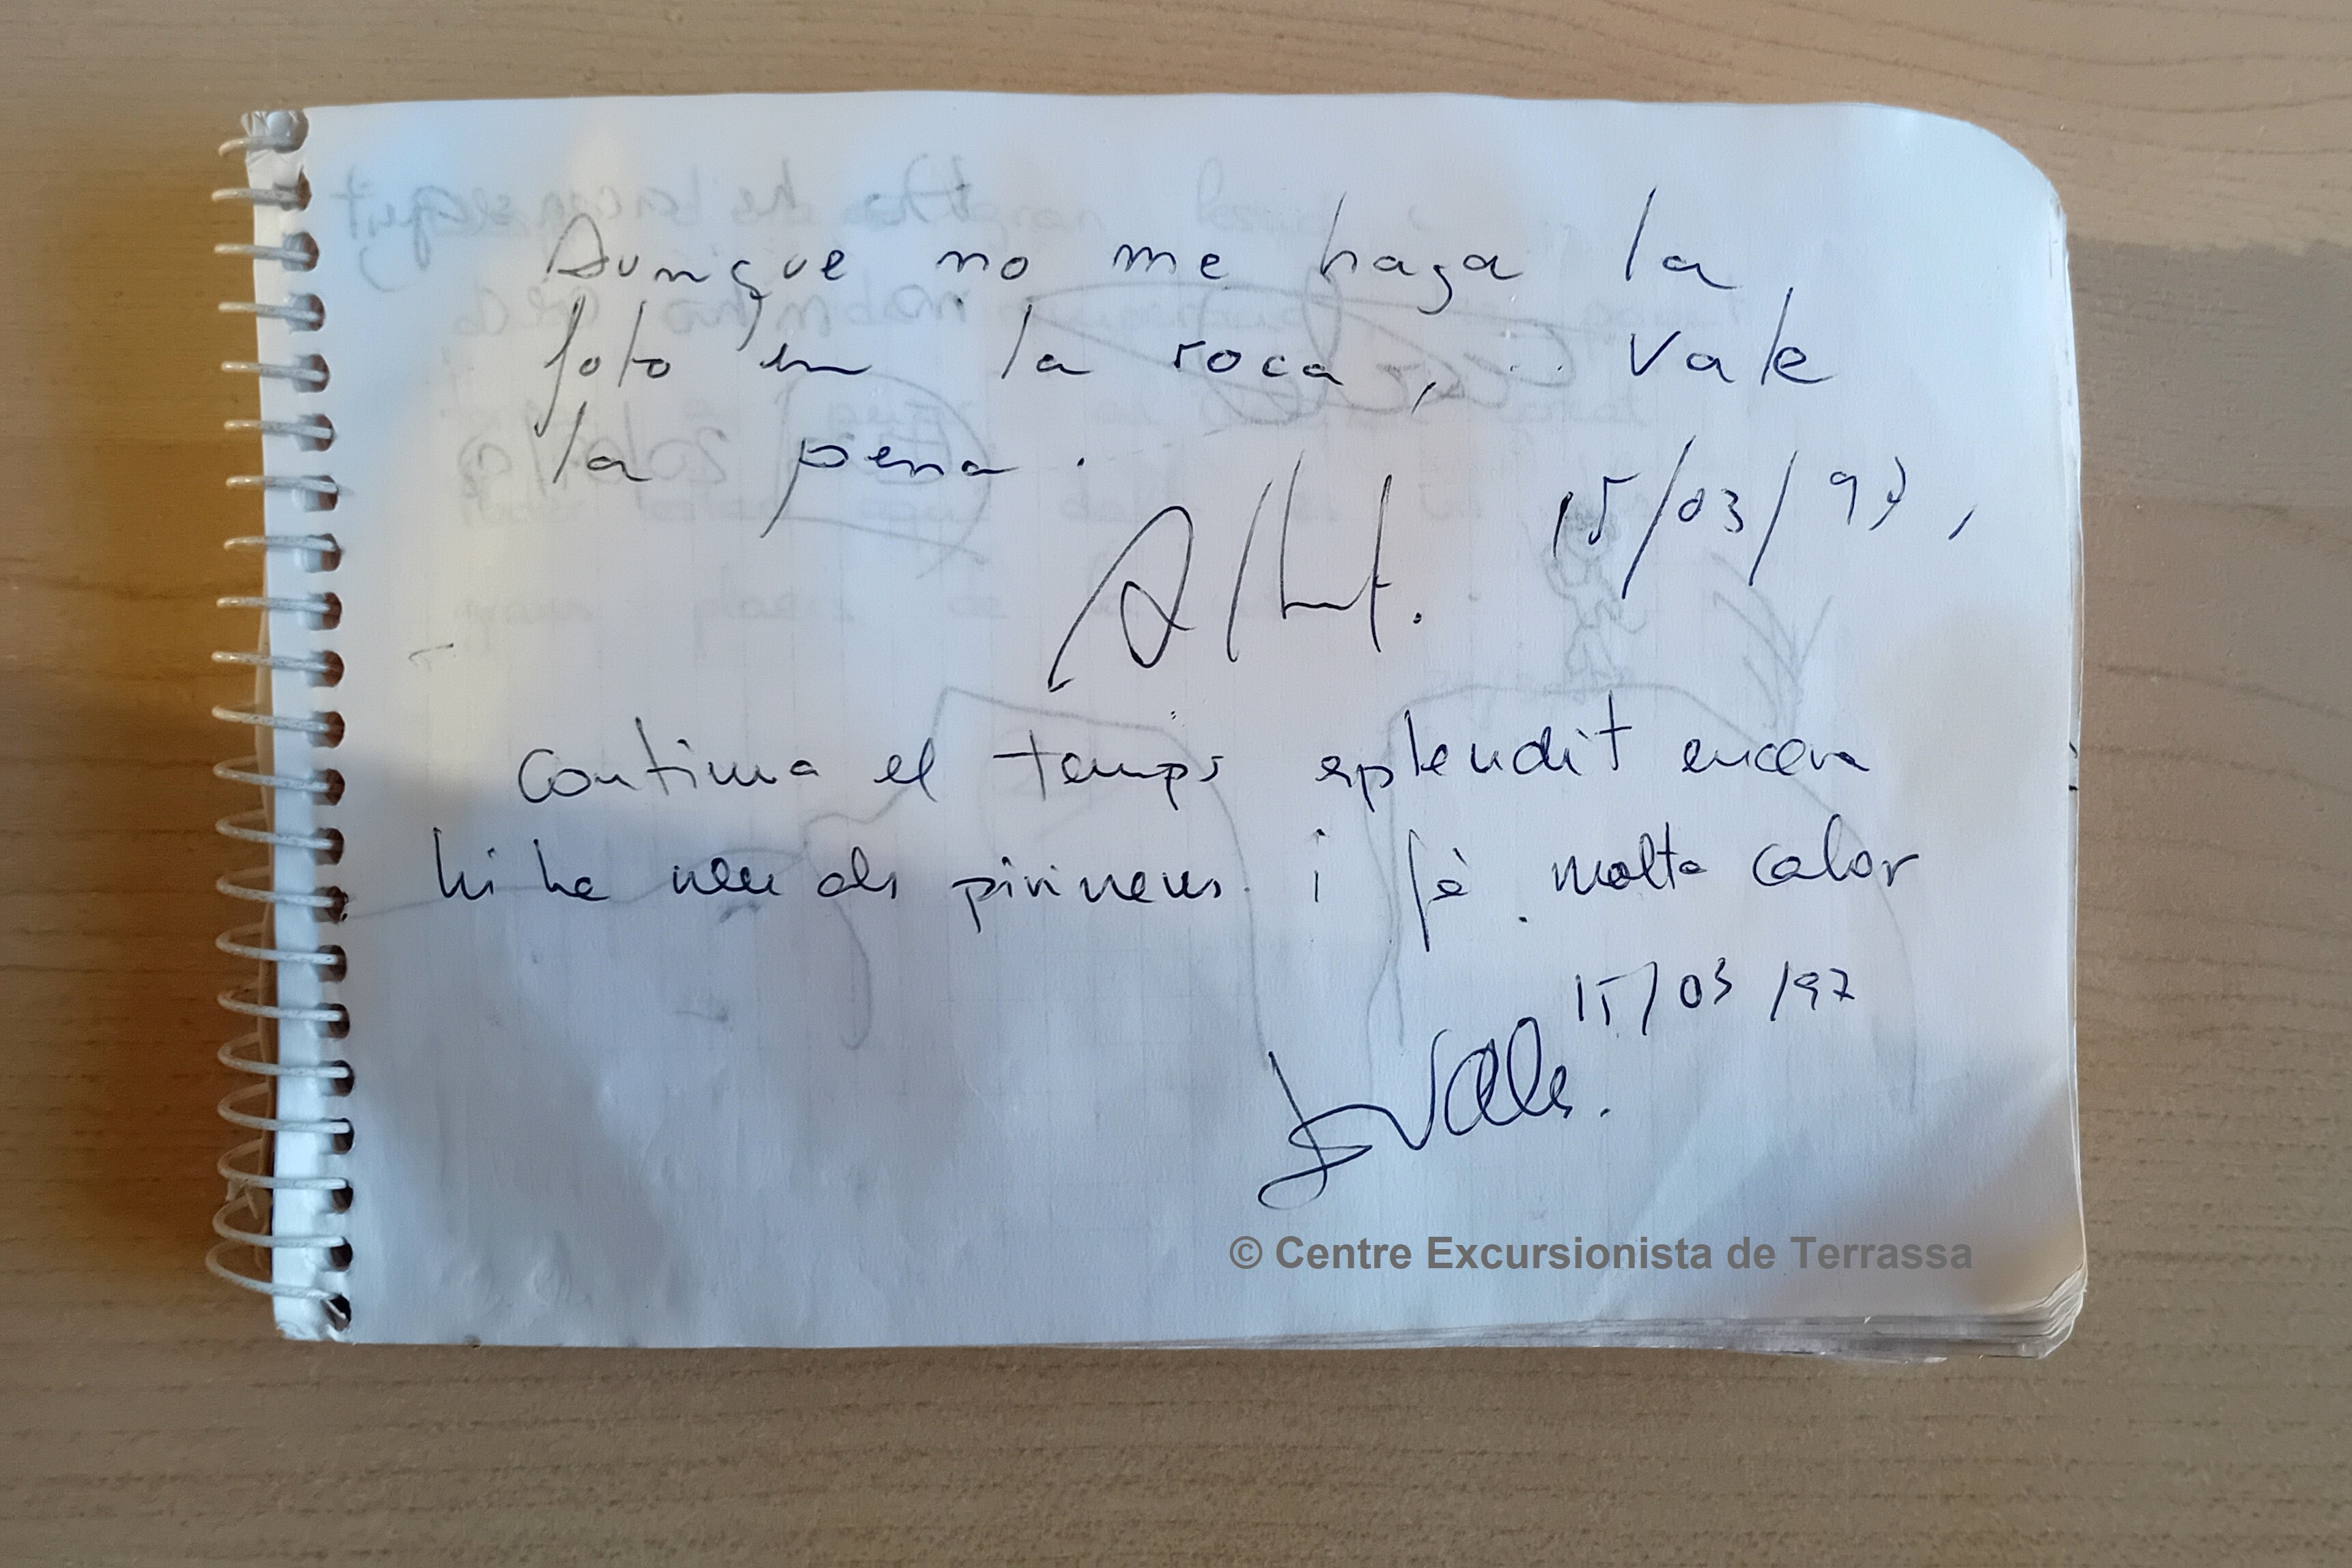 Aunque no me haga la
foto en la roca, vale
la pena.
15/03/97,
Albert.
continua el temps esplendit encara
hi ha neu als pirineus i fà molta calor
15/03/97
Valls.
© Centre Excursionista de Terrassa